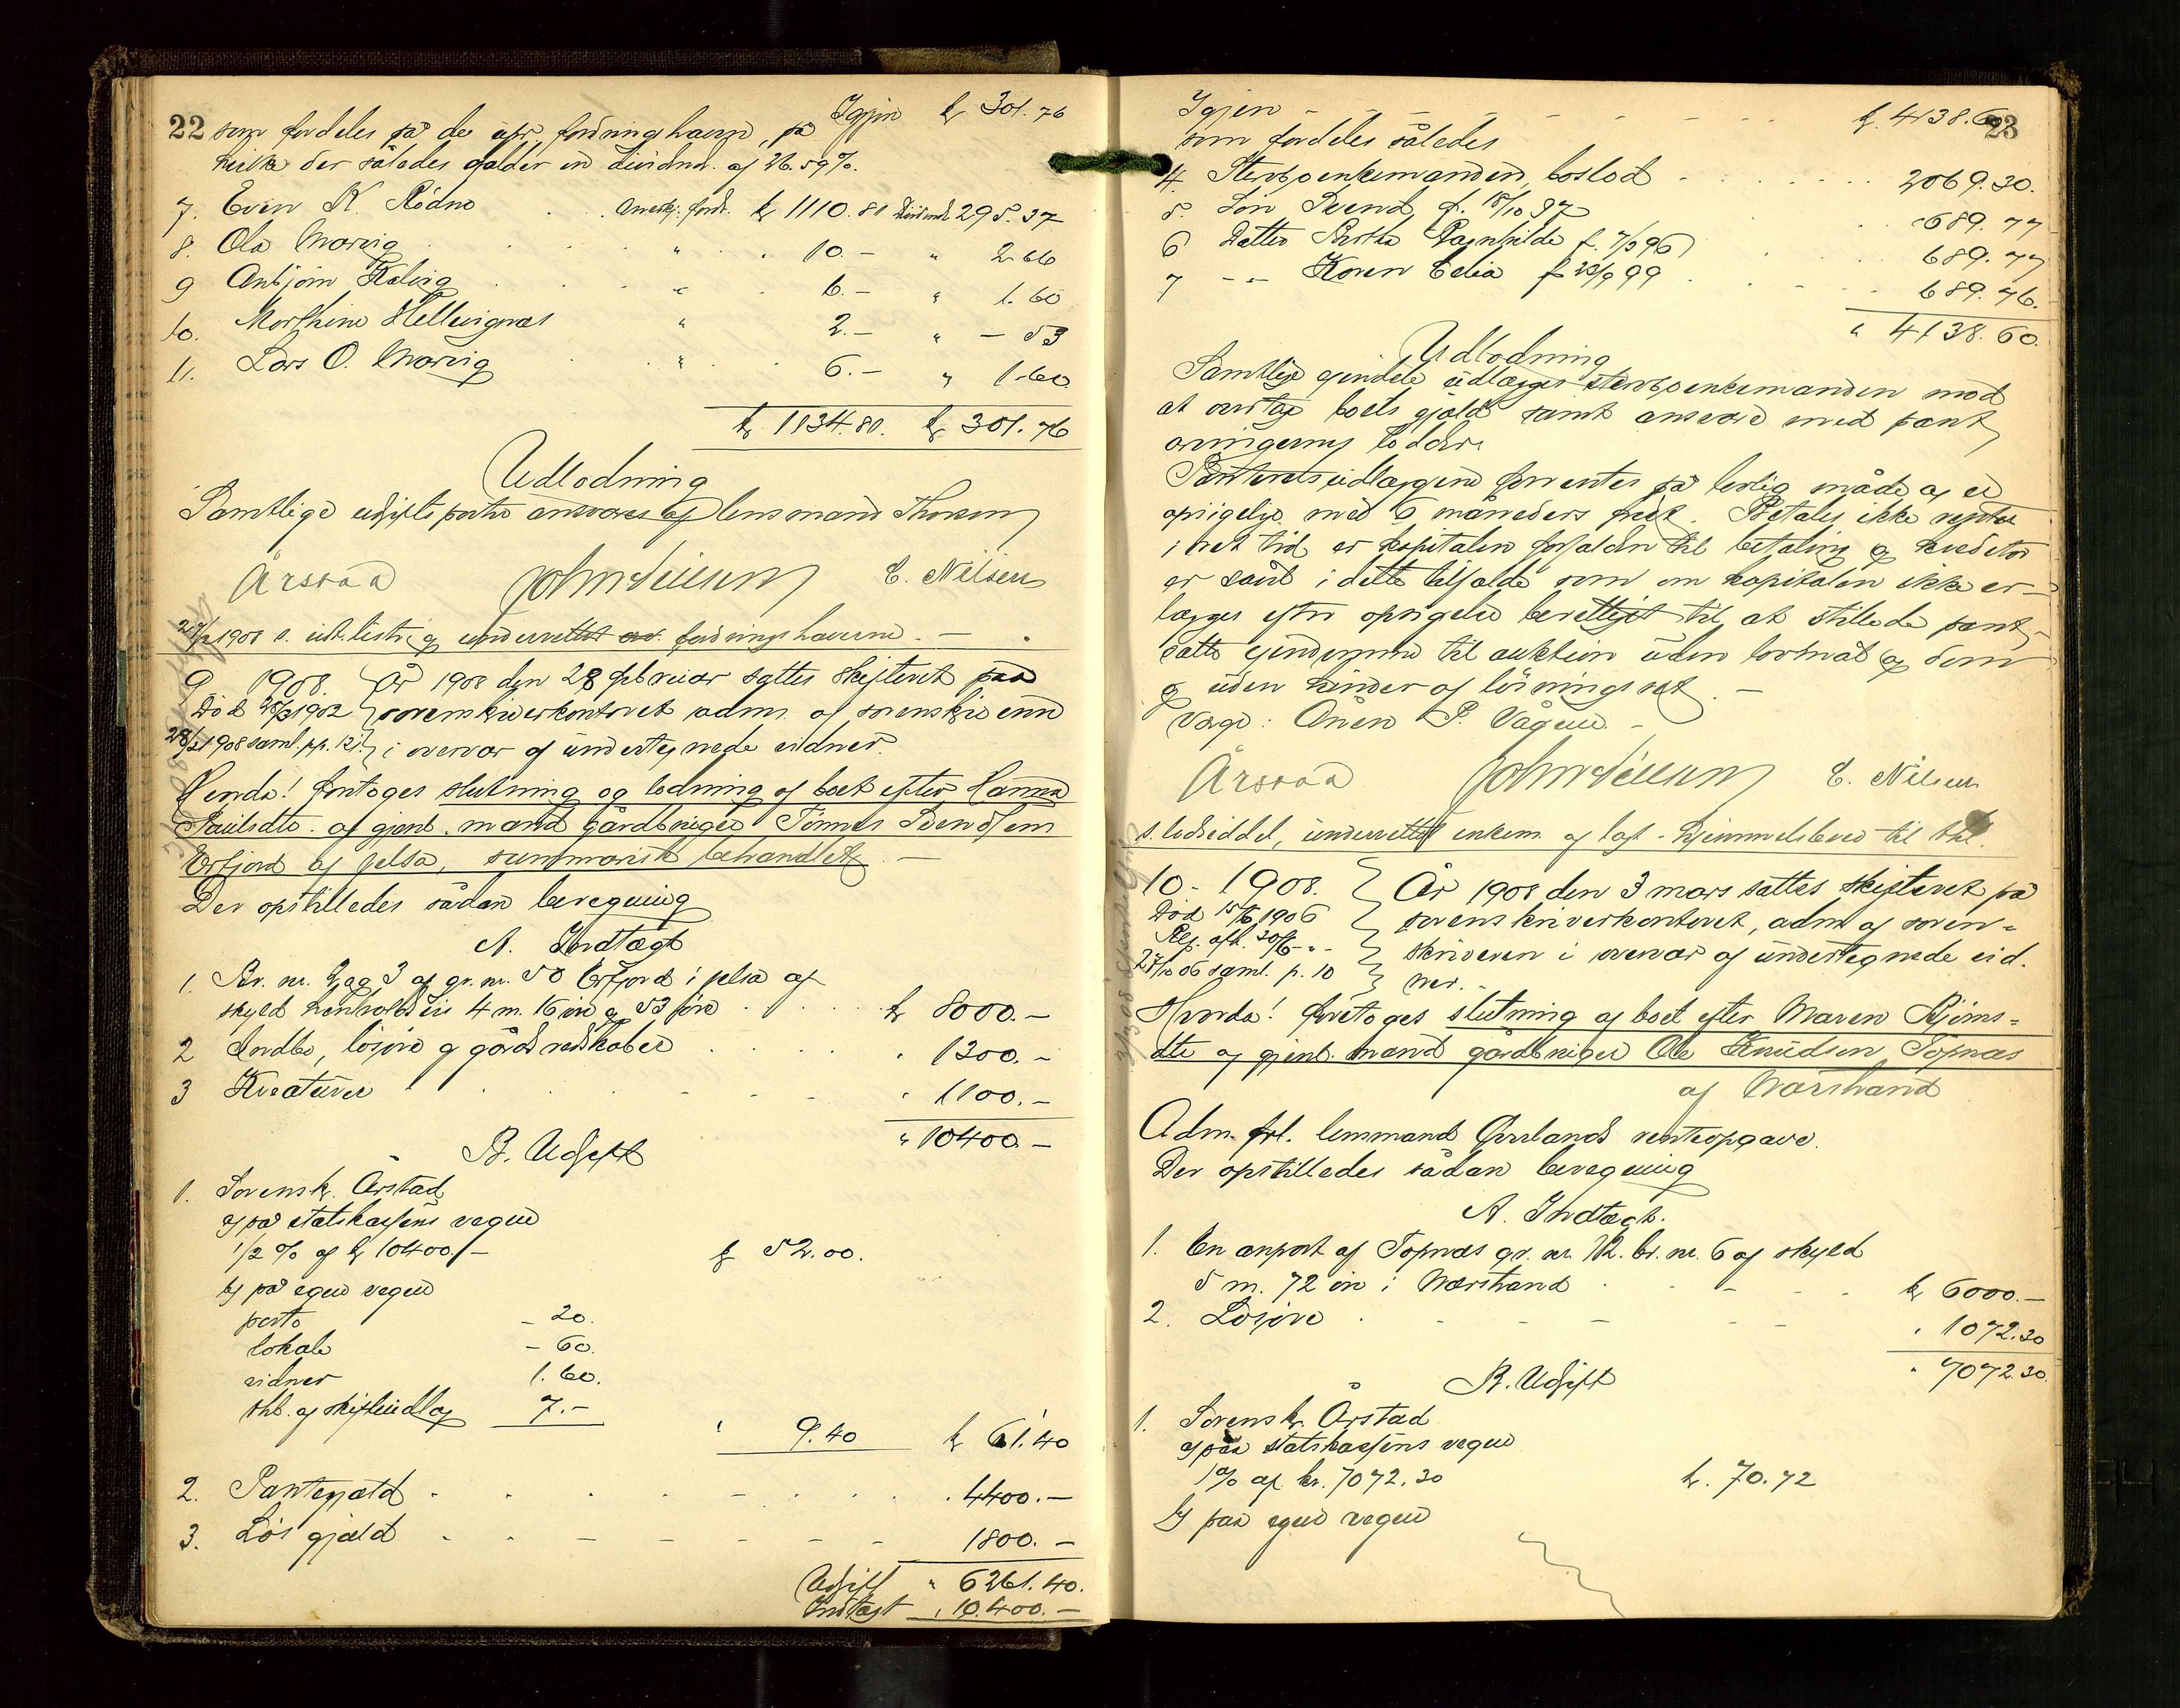 22
Igjen kr 301.76
som fordeles på de øfr. fordringshavere, på
hvilke der således falder en dividende af 26.59%.
7. Even K. Rødne . . Anerkj. fordr. kr 1110.80 Dividende 295.37
8. Ola Marvig . . . " . . 10.- " 2.66
9 Anbjørn Kalvig . . . " . 6.- " 1.60
10. Marthine Hellvignæs " 2.- " - 53
11. Lars O. Marvig . . " . 6.- " 1.60
kr 1134.80. kr 301.76
Udlodning
Samtlige udgiftsposter ansvares af lensmand Thorsen
Årstad John Tillung C. Nilsen
1908 s. udl.liste og underrettet fordringshaverne. -
9 1908. År 1908 den 28 februar sattes skifteret paa
Død 1902 sorenskriverkontoret adm. af sorenskriveren
1908 saml. pp. 12. i overvær af undertegnede vidner.
Hvorda! foretoges slutning og lodning af boet efter Hanna
Paulsdtr. af gjenl. mand gårdbruger Tønnes Svendsen
Erfjord af Jelsa, summarisk behandlet. -
Der opstilledes sådan beregning
A. Indtægt
1. Br. nr. 2 og 3 af gr. nr. 50 Erfjord i Jelsa af
skyld henholdsvis 4 m. 16 øre og 53 øre . . . . kr 8000.-
2 Indbo, løsøre og gårdsredskaber . . . . . " 1300.-
3 Kreaturer . . . - - - . " 1100.-
" 10400.-
B. Udgift
1. Sorenskr. Årstad
a) på statskassens vegne
1/2 % af kr 10400.- kr 52.00.
b) på egne vegne
porto - 20.
lokale - 60.
vidner 1.60.
skb. af skifteudlæg 7.-
" 9.40 kr 61.40
2. Pantegjæld - . . . - . . . . 4400.-
3. Løs gjæld - . - - - - - 1800.-
Udgift " 6261.40.
Indtægt " 10.400.-
23
Igjen - - - - - - - - - kr. 4138.60
som fordeles således
4. Sterboenkemanden, boslod - . . . . . . 2069.30.
5. Søn Svend, f. 18/10 97 689.77
6 Datter Bertha Ragnhilde f. 7/3 96 . . . 689.77
7 - - Karen Celia f 23/9 99 . . - . - - 689.76.
" 4138.60.
Udlodning
Samtlige eiendele udlægges sterboenkemanden mod
at overtage boets gjæld samt ansvare med pant
arvingernes lodder.
Panterets udlæggene forrentes på lovlig måde og er
opsigelige med 6 måneders frist. Betales ikke renter
i ret tid er kapitalen forfalden til betaling og kreditor
er såvel i dette tilfælde som om kapitalen ikke er-
lægges efter opsigelse berettiget til at stille de pant-
satte eiendomme til auktion uden lovmål og dom
og uden hinder af løsningsret. -
Værge: Ånen P. Vågene. -
Årstad John Tillung C. Nilsen
s. lodseddel, underrettet enkem. og lagt - hjemmelsbrev til thl.
10 - 1908. År 1908 den 3 mars sattes skifteret på
Død 15/6 1906 sorenskriverkontoret, adm. af soren-
Reg. afh. 30/6 - " - skriveren i overvær af undertegnede vid-
27/10 06 saml. p. 10 ner. -
Hvorda! foretoges slutning af boet efter Maren Bjørns-
dtr af gjenl. mand gårdbruger Ole Knudsen Topnæs
af Nærstrand
Adm. frl. lensmand Øverlands renteopgave.
Der opstilledes sådan beregning
A. Indtægt.
1. En anpart af Topnæs gr. nr. 12. br. nr. 6 af skyld
5 m. 72 øre i Nærstrand . . - - . kr 6000.-
2. Løsøre . - - - - - " 1072.30
" 7072.30.
B. Udgift
1. Sorenskr. Årstad
a) paa statskassens vegne
1% af kr. 7072.30 kr. 70.72
b) paa egne vegne